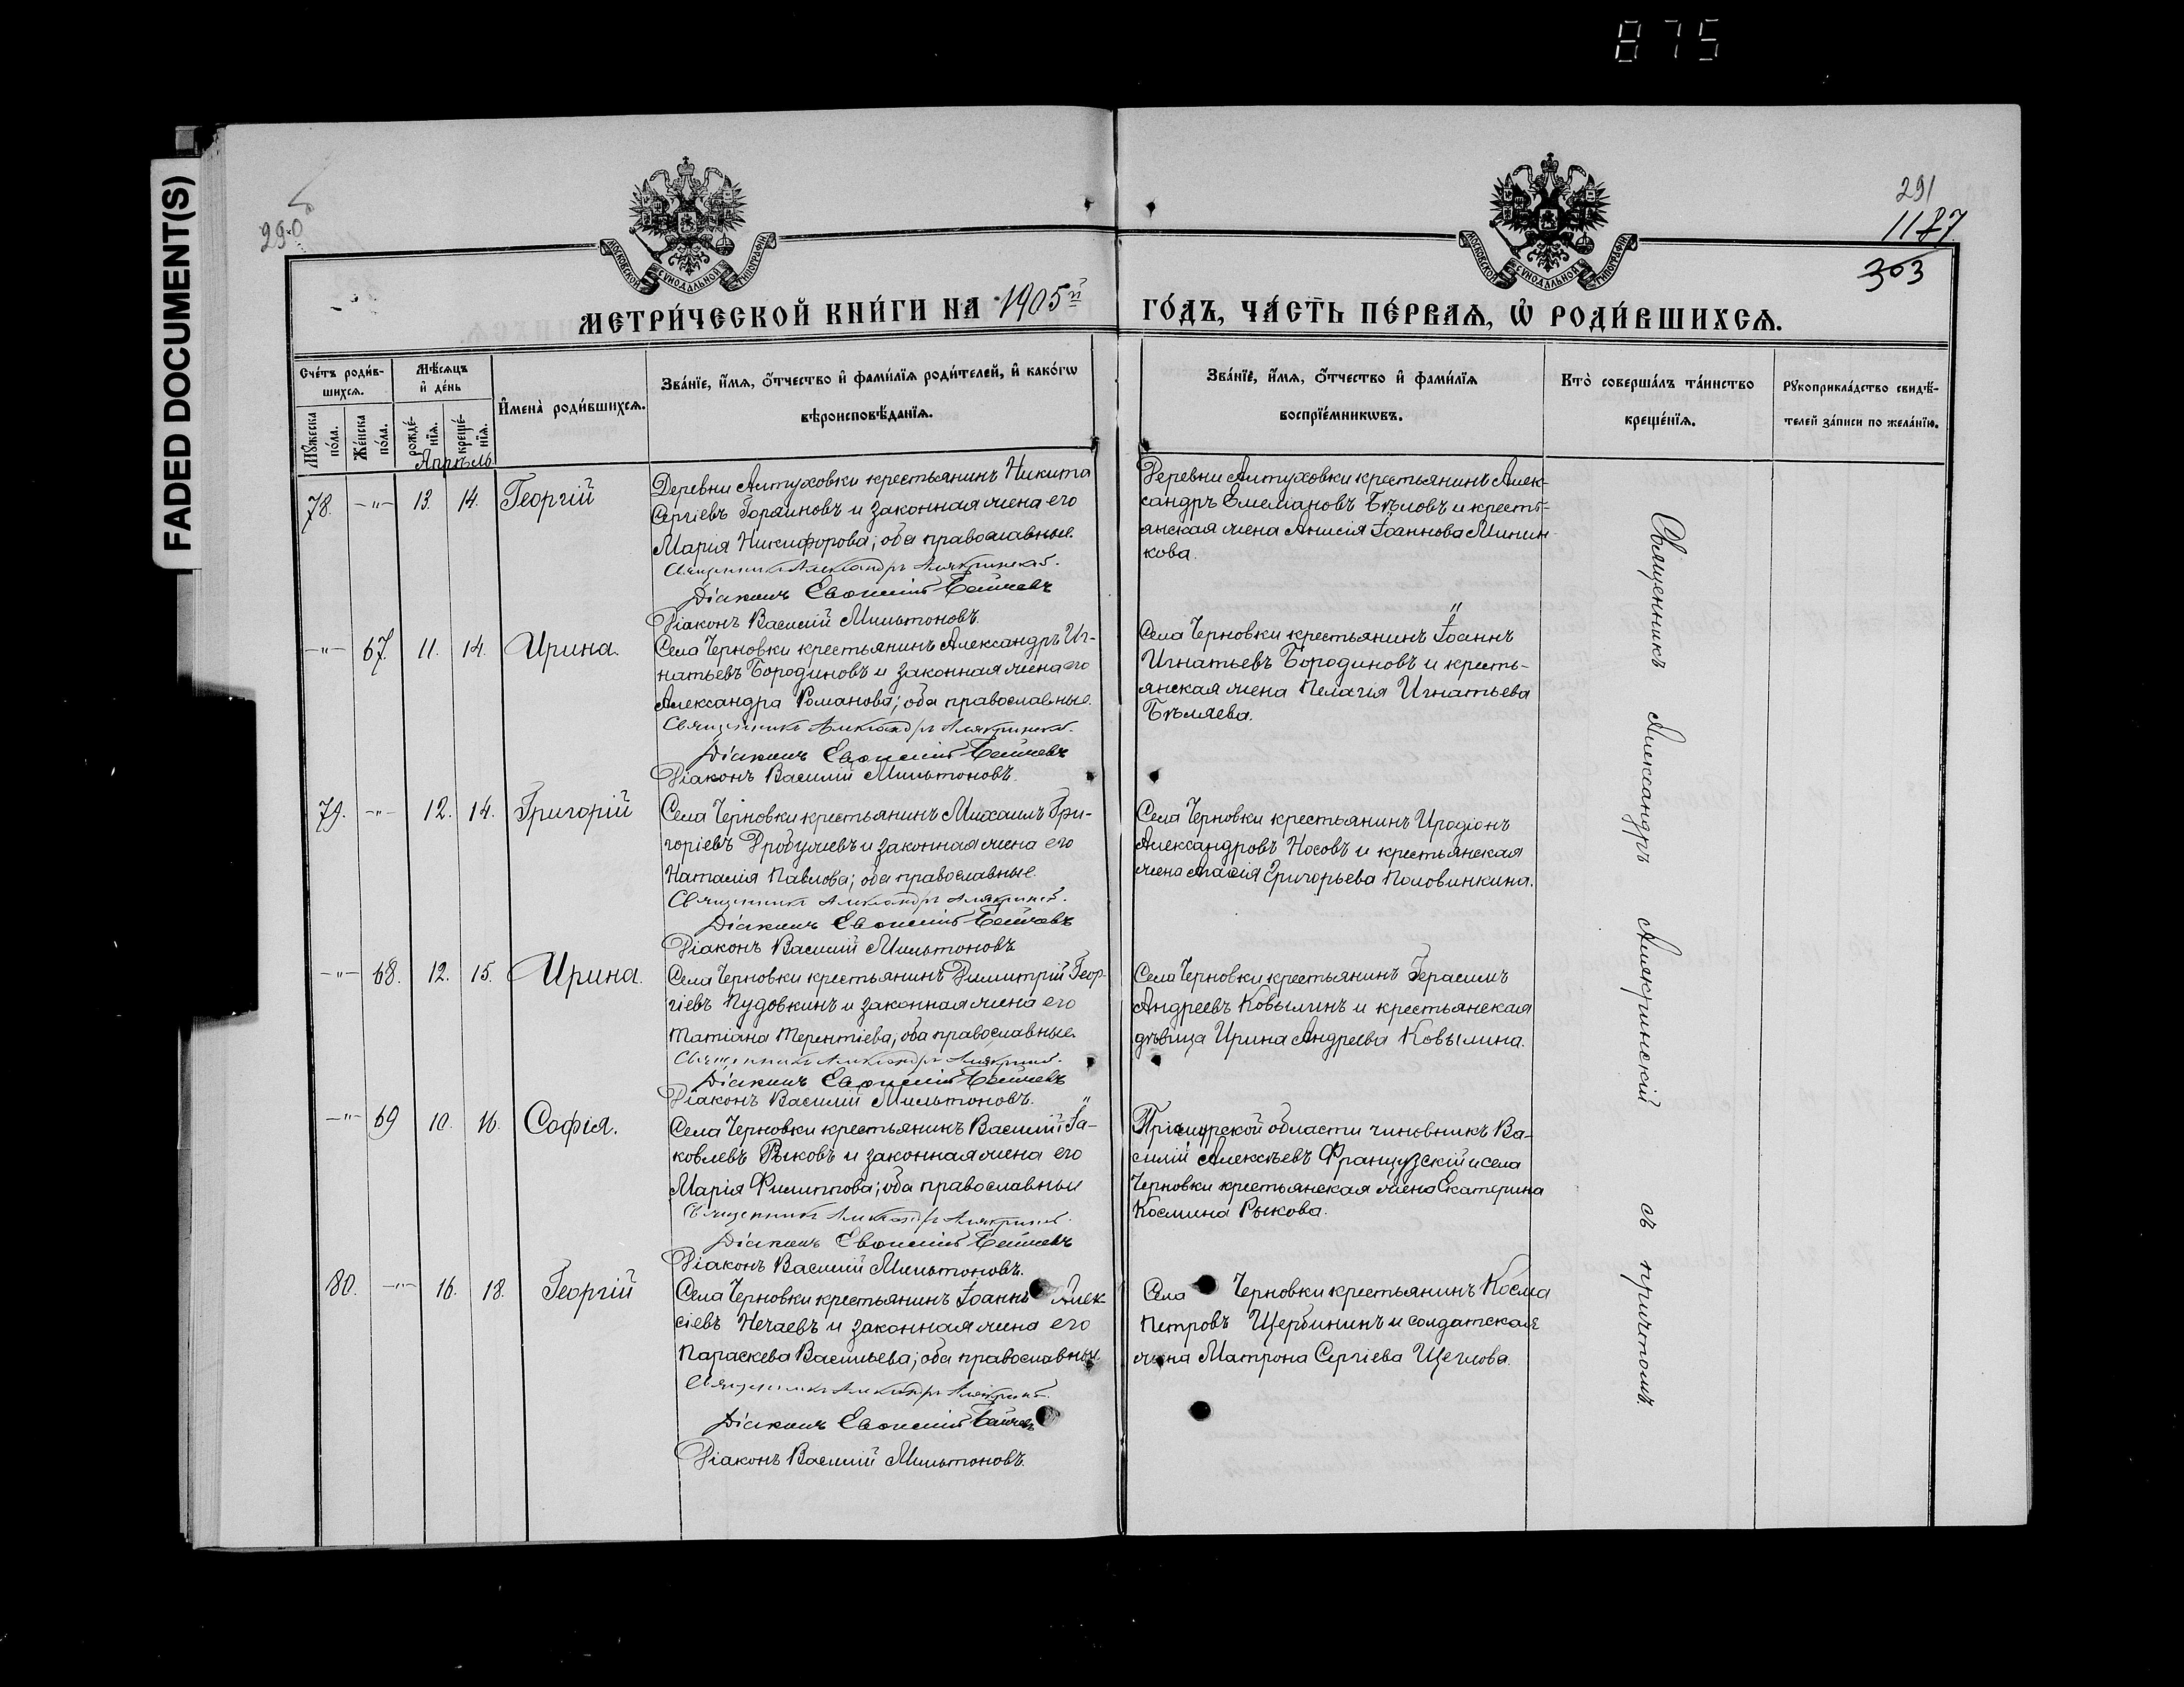 875
FADED DOCUMENT(S)
290
291
1187
303
МОСКОВСКОЙ СѴНОДАЛЬНОЙ ТИПОГРАФІИ
МОСКОВСКОЙ СѴНОДАЛЬНОЙ ТИПОГРАФІИ
МЕТРИ́ЧЕСКОЙ КНИ́ГИ НА 1905й
ГО́ДЪ, ЧА́СТЬ ПЕ́РВАѦ, Ѡ҆ РОДИ́ВШИХСѦ.
Сче́тъ роди́в-
шихсѧ.
Мꙋ́жеска по́ла.
Же́нска по́ла.
Мѣ́сѧцъ
и҆ де́нь
рожде́-
нїѧ.
креще́-
нїѧ.
И҆мена̀ роди́вшихсѧ.
Зва́нїе, и҆́мѧ, ѻ҆́тчество и҆ фами́лїѧ роди́телей, и҆ како́гѡ
вѣроисповѣ́данїѧ.
Зва́нїе, и҆́мѧ, ѻ҆́тчество и҆ фами́лїѧ
воспрїе́мникѡвъ.
Кто̀ соверша́лъ та́инство
креще́нїѧ.
Рꙋкоприкла́дство свидѣ́-
телей за́писи по жела́нїю.
Апрѣль
78. -"- 13. 14. Георгій
Деревни Алтуховки крестьянинъ Никита
Сергіевъ Горяиновъ и законная жена его
Марія Никифорова; оба православные.
Священникъ Александръ Алякринскій.
Діаконъ Евѳимій
Діаконъ Василій Мильтоновъ.
Деревни Алтуховки крестьянинъ Алек-
сандръ Емельяновъ Бѣловъ и кресть-
янская жена Анисія Іоаннова Минин-
кова.
-"- 67. 11. 14. Ирина.
Села Черновки крестьянинъ Александръ Иг-
натьевъ Бородиновъ и законная жена его
Александра Романова; оба православные.
Священникъ Александръ Алякринскій.
Діаконъ Евѳимій
Діаконъ Василій Мильтоновъ.
Села Черновки крестьянинъ Іоаннъ
Игнатьевъ Бородиновъ и кресть-
янская жена Пелагія Игнатьева
Бѣляева.
79. -"- 12. 14. Григорій
Села Черновки крестьянинъ Михаилъ Гри-
горіевъ и законная жена его
Наталія Павлова; оба православные.
Священникъ Александръ Алякринскій.
Діаконъ Евѳимій
Діаконъ Василій Мильтоновъ
Села Черновки крестьянинъ Иродіонъ
Александровъ Носовъ и крестьянская
жена Григорьева Половинкина.
-"- 68. 12. 15. Ирина.
Села Черновки крестьянинъ Димитрій Геор-
гіевъ Пудовкинъ и законная жена его
Татіана Терентіева, оба православные.
Священникъ Александръ Алякринскій.
Діаконъ Евѳимій
Діаконъ Василій Мильтоновъ.
Села Черновки крестьянинъ Герасимъ
Андреевъ Ковылинъ и крестьянская
дѣвица Ирина Андреева Ковылина.
-"- 69 10. 16. Софія.
Села Черновки крестьянинъ Василій Іа-
ковлевъ Рыковъ и законная жена его
Марія Филиппова; оба православные
Священникъ Александръ Алякринскій.
Діаконъ Евѳимій
Діаконъ Василій Мильтоновъ.
Приморской области чиновникъ Ва-
силій Алексѣевъ Французскій и села
Черновки крестьянская жена Екатерина
Космина Рыкова.
80. -"- 16. 18. Георгій
Села Черновки крестьянинъ Іоаннъ Алек-
сіевъ Нечаевъ и законная жена его
Параскева Васильева; оба православные.
Священникъ Александръ Алякринскій.
Діаконъ Евѳимій
Діаконъ Василій Мильтоновъ.
Села Черновки крестьянинъ Косма
Петровъ Щербининъ и солдатская
жена Матрона Сергіева Щеглова.
Священникъ Александръ Алякринскій съ причтомъ.